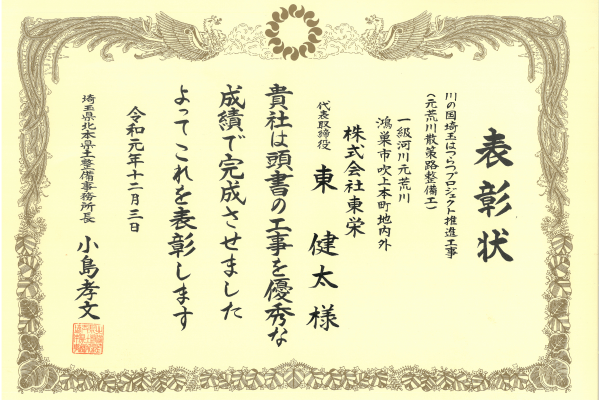 表彰状
川の国埼玉はつらつプロジェクト推進工事
(元荒川散策路整備工)
一級河川元荒川
鴻巣市吹上本町地内外
株式会社東栄
代表取締役 東 健太 様
貴社は頭書の工事を優秀な
成績で完成させました
よってこれを表彰します
令和元年十二月三日
埼玉県北本県土整備事務所長 小島孝文